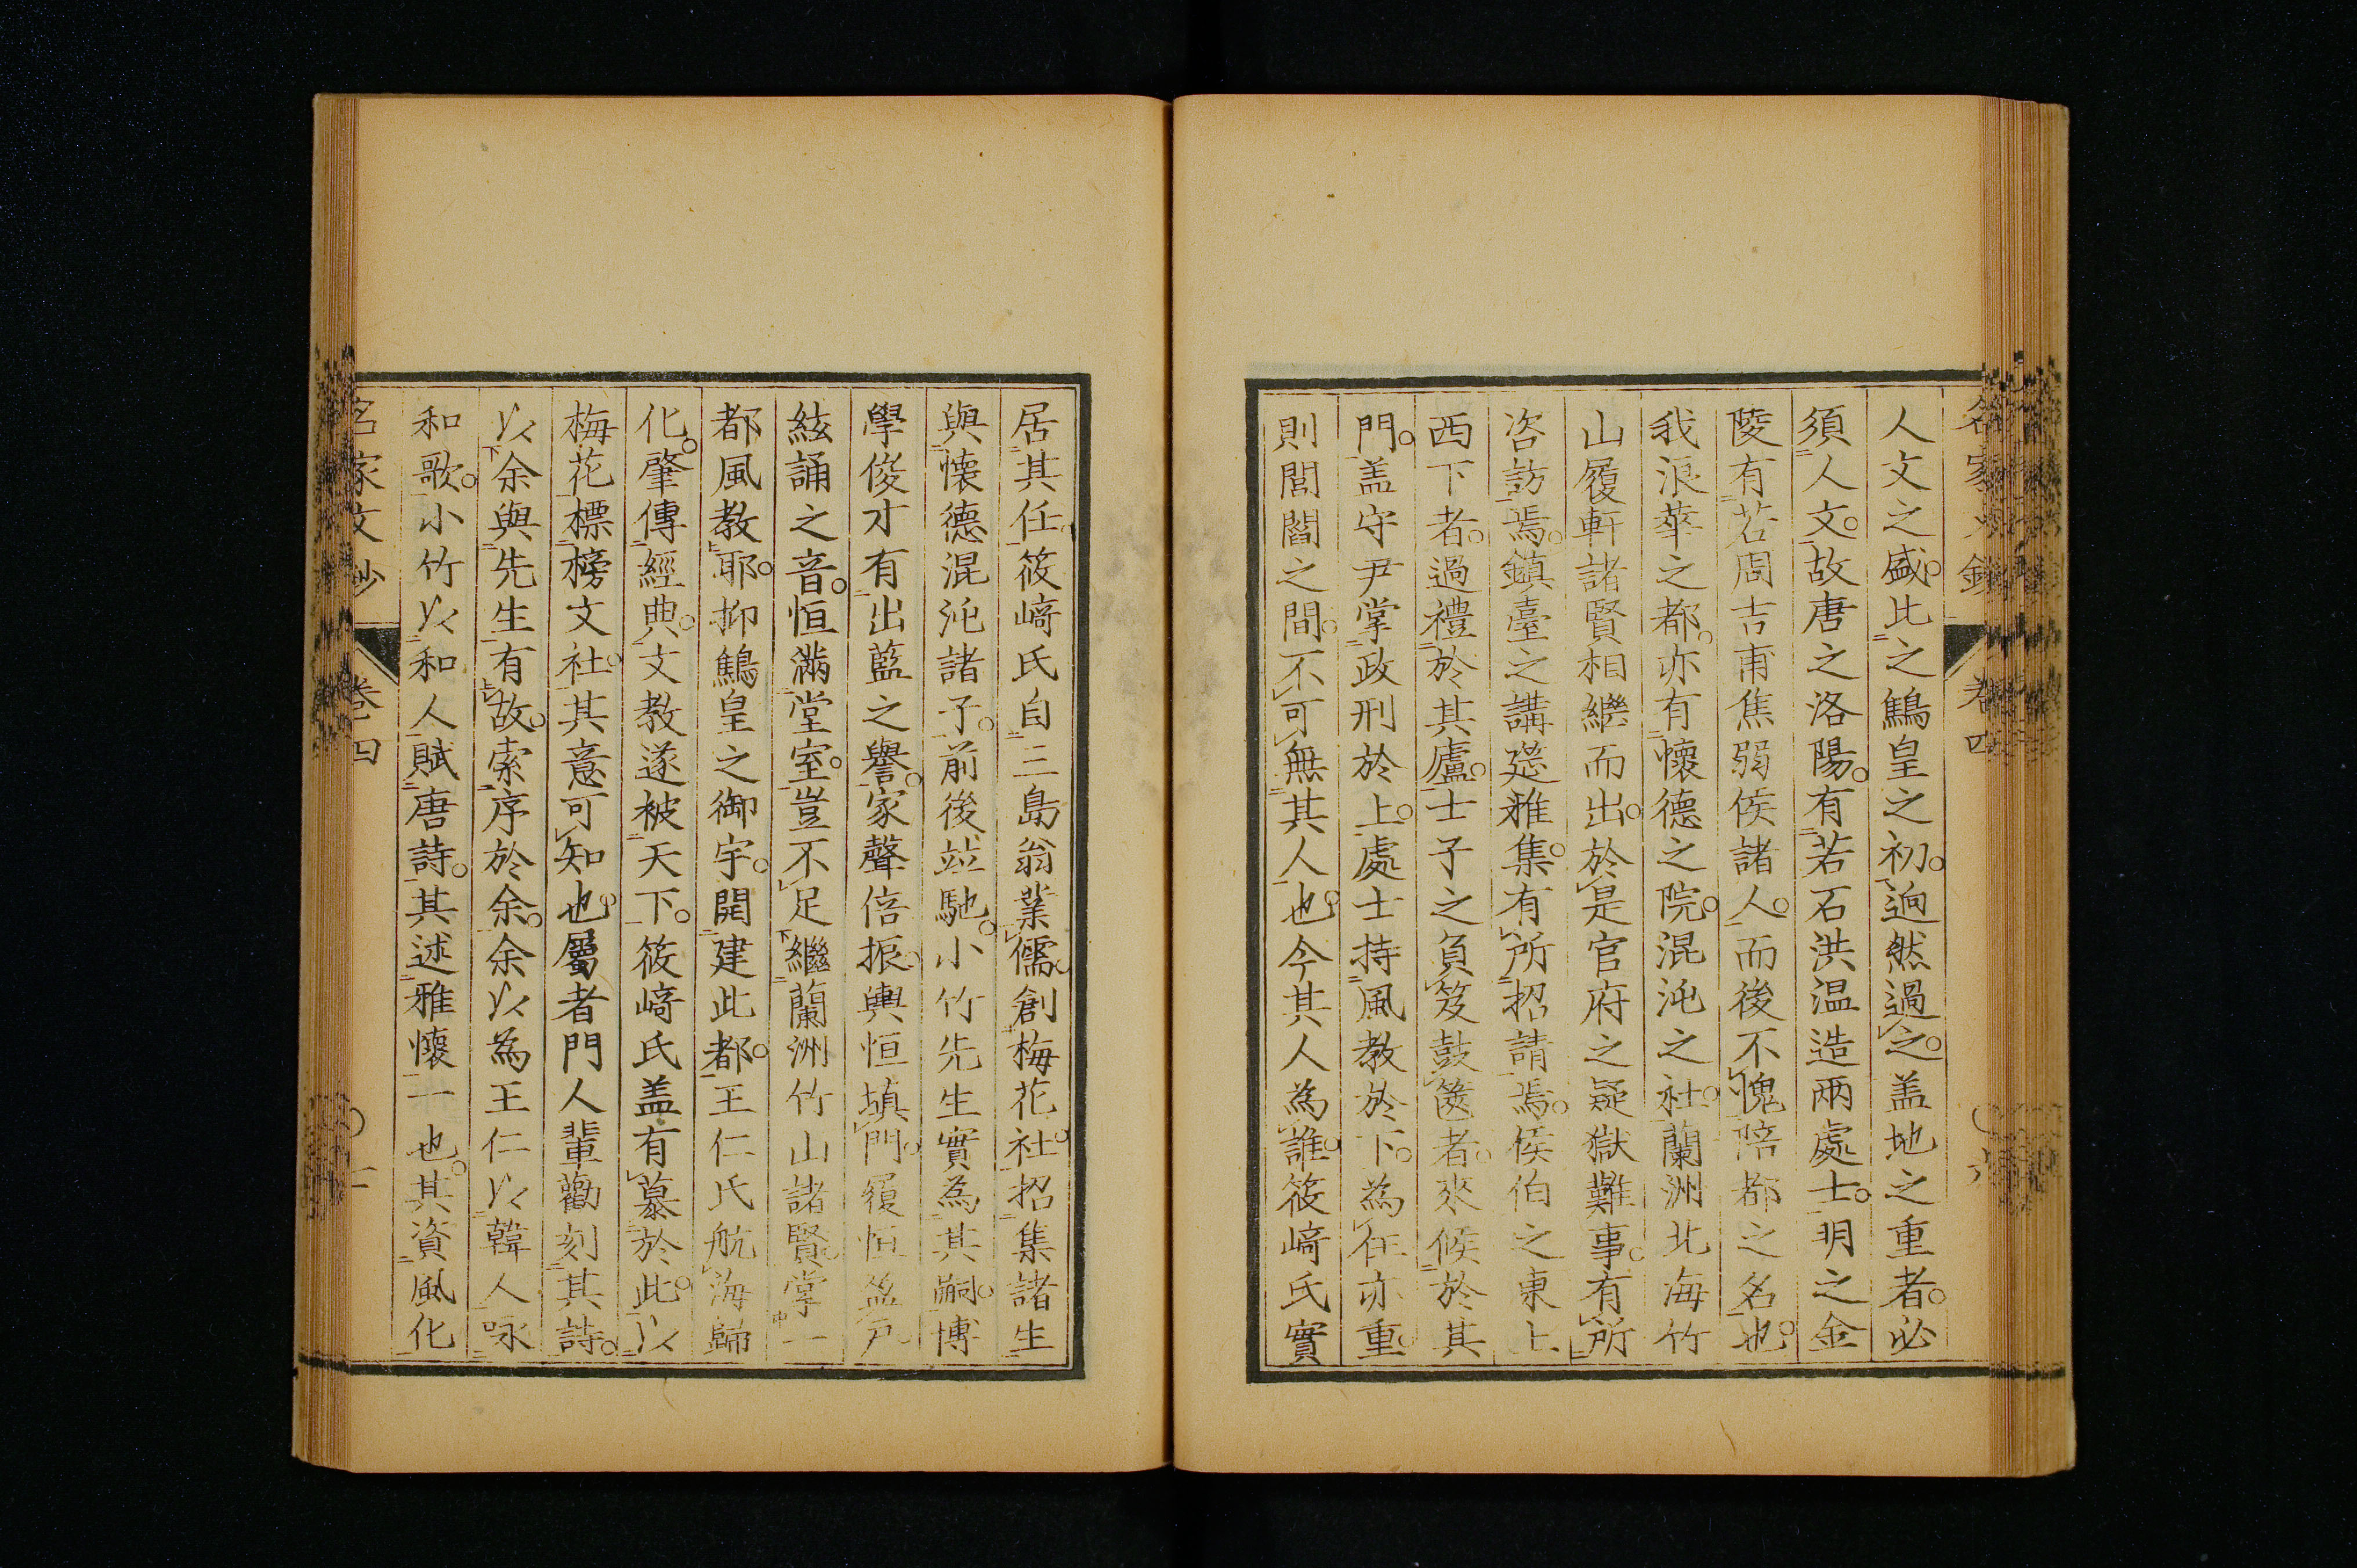 人文之盛比之鷦皇之初逈然過之盖地之重者必
須人文故唐之洛陽有若石洪温造兩處士明之金
陵有若周吉甫焦弱侯諸人而後不愧陪都之名也
我浪華之都亦有懷德之院混沌之社蘭洲北海竹
山履軒諸賢相繼而出於是官府之疑獄難事有所
咨訪焉鎮臺之講筵雅集有所招請焉侯伯之東上
西下者過禮於其廬士子之負笈鼓篋者來候於其
門盖守尹掌政刑於上處士持風教於下為任亦重
則閭閻之間不可無其人也今其人為誰筱﨑氏實
居其任筱﨑氏自三島翁業儒創梅花社招集諸生
與懷德混沌諸子前後竝馳小竹先生實為其嗣博
學俊才有出藍之譽家聲倍振輿恒填門履恒盈戶
絃誦之音恒滿堂室豈不足繼蘭洲竹山諸賢掌一
都風教耶抑鷦皇之御宇開建此都王仁氏航海歸
化肇傳經典文教遂被天下筱﨑氏盖有慕於此以
梅花標榜文社其意可知也屬者門人輩勸刻其詩
以余與先生有故索序於余余以為王仁以韓人咏
和歌小竹以和人賦唐詩其述雅懷一也其資風化
名家文抄 卷四